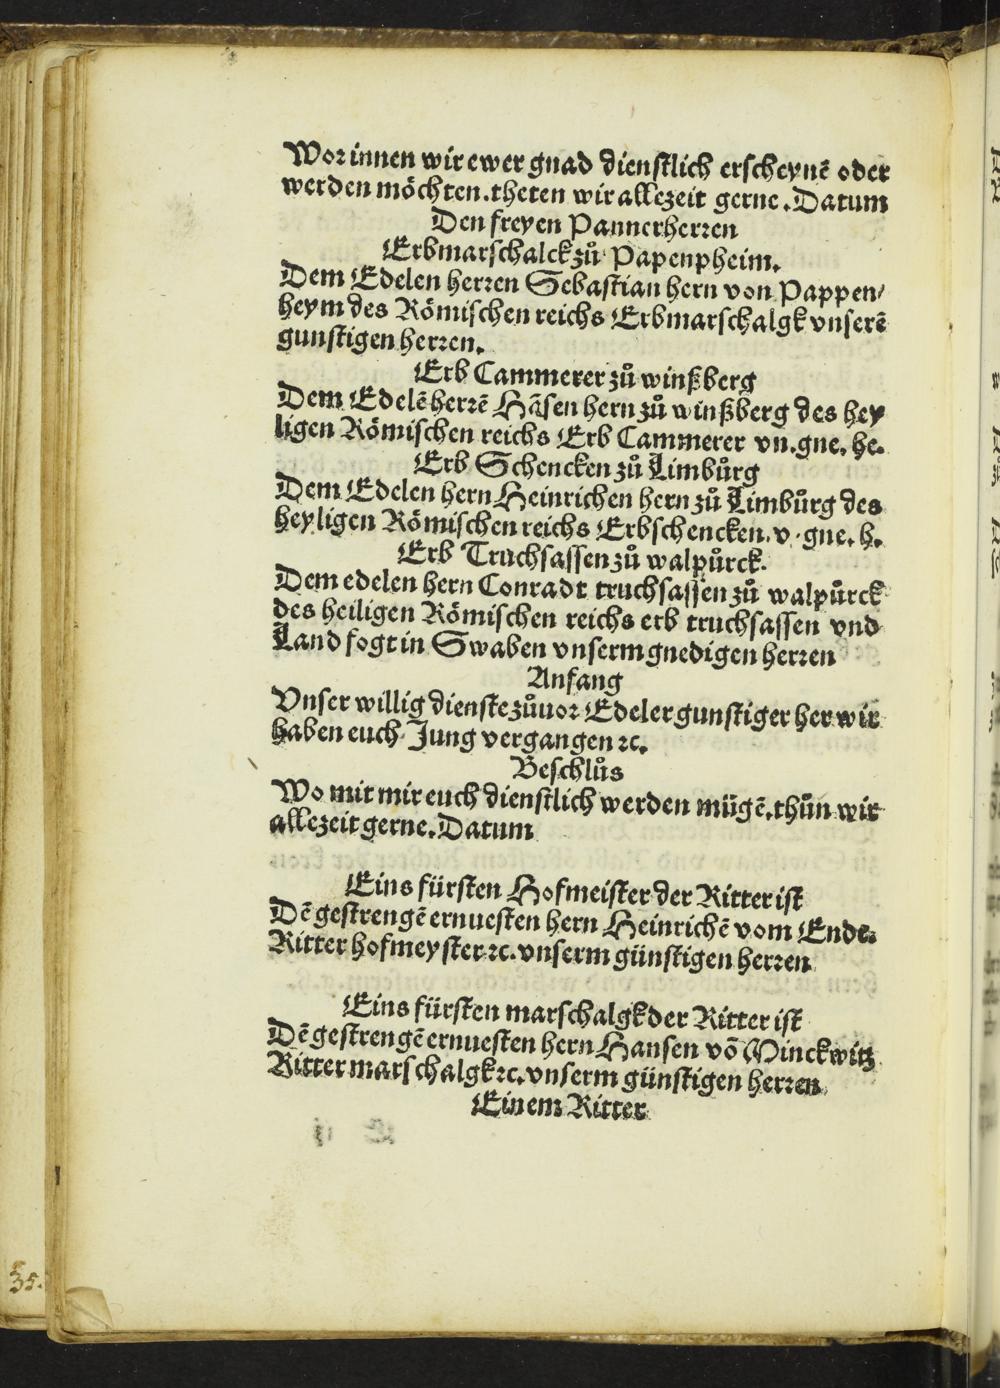 Wor innen wir ewer gnad dienstlich erscheynē oder
werden möchten. theten wir allezeit gerne. Datum
Den freyen Pannerherren
Erbmarschalck zů Papenpheim.
Dem Edelen herren Sebastian hern von Pappen/
heym des Römischen reichs Erbmarschalgk vnserē
gunstigen herren.
Erb Cammerer zů winßberg
Dem Edelē herrē Hāsen hern zů winßberg des hey
ligen Römischen reichs Erb Cammerer vn. gne. he.
Erb Schencken zů Limbůrg
Dem Edelen hern Heinrichen hern zů Limbůrg des
heyligen Römischen reichs Erbschencken. v. gne. h.
Erb Truchsassen zů walpůrck.
Dem edelen hern Conradt truchsassen zů walpůrck
des heiligen Römischen reichs erb truchsassen vnd
Land fogt in Swaben vnserm gnedigen herren
Anfang
Vnser willig dienste zůuor Edeler gunstiger her wir
haben euch Jung vergangen ⁊c.
Beschlůs
Wo mit mir euch dienstlich werden mügē. thůn wir
allezeit gerne. Datum
Eins fürsten Hofmeister der Ritter ist
Dē gestrengē ernuesten hern Heinrichē vom Ende.
Ritter hofmeyster ⁊c. vnserm günstigen herren
Eins fürsten marschalgk der Ritter ist
Dē gestrengē ernuesten hern Hansen vō Minckwitz
Ritter marschalgk ⁊c. vnserm günstigen herren
Einem Ritter
35.